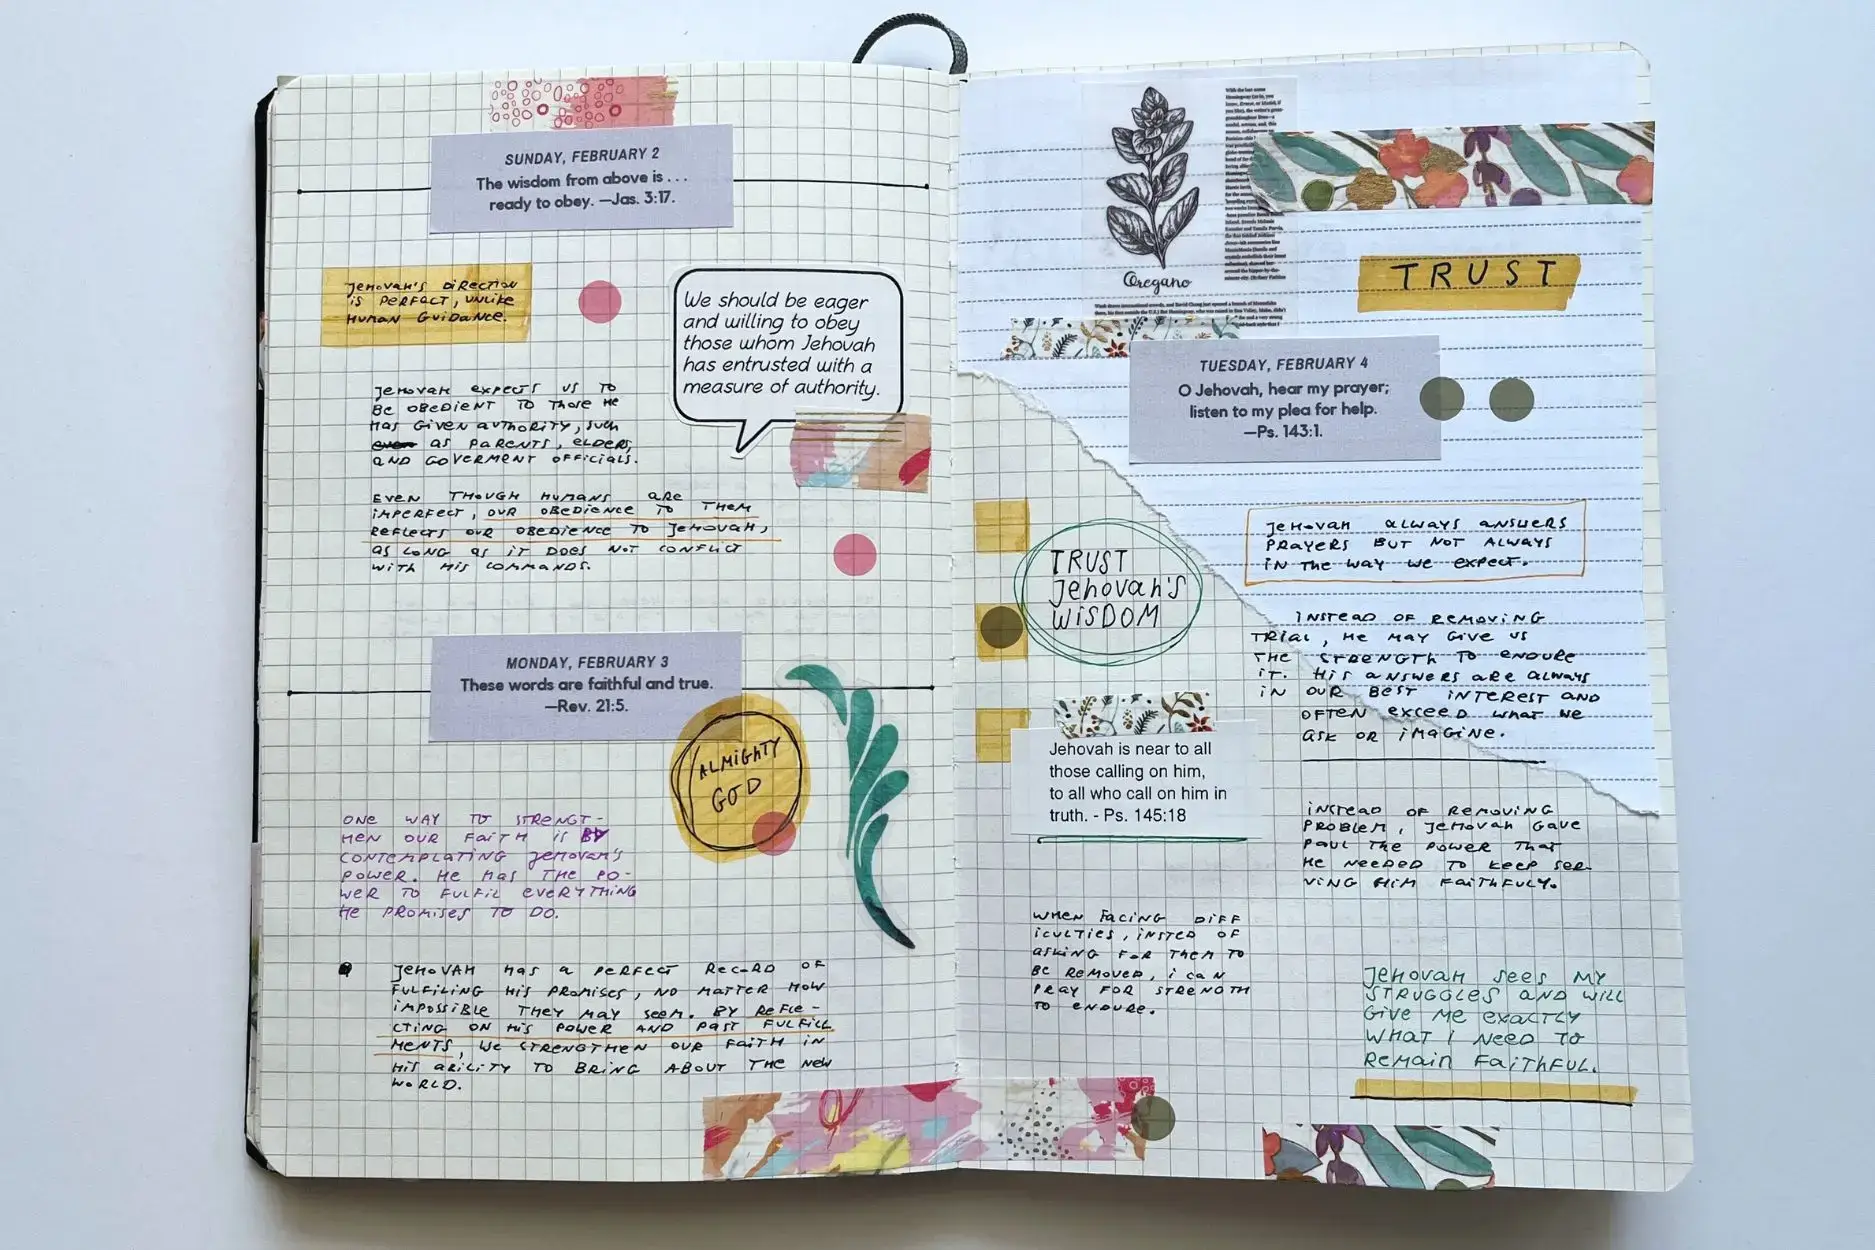 SUNDAY, FEBRUARY 2
The wisdom from above is . . .
ready to obey. —Jas. 3:17.
JEHOVAH'S DIRECTION
IS PERFECT, UNLIKE
HUMAN GUIDANCE.
We should be eager
and willing to obey
those whom Jehovah
has entrusted with a
measure of authority.
JEHOVAH EXPECTS US TO
BE OBEDIENT TO THOSE HE
HAS GIVEN AUTHORITY, SUCH
AS PARENTS, ELDERS,
AND GOVERMENT OFFICIALS.
EVEN THOUGH HUMANS ARE
IMPERFECT, OUR OBEDIENCE TO THEM
REFLECTS OUR OBEDIENCE TO JEHOVAH,
AS LONG AS IT DOES NOT CONFLICT
WITH HIS COMMANDS.
MONDAY, FEBRUARY 3
These words are faithful and true.
—Rev. 21:5.
ALMIGHTY
GOD
ONE WAY TO STRENGT-
HEN OUR FAITH IS BY
CONTEMPLATING JEHOVAH'S
POWER. HE HAS THE PO-
WER TO FULFIL EVERYTHING
HE PROMISES TO DO.
JEHOVAH HAS A PERFECT RECORD OF
FULFILING HIS PROMISES, NO MATTER HOW
IMPOSSIBLE THEY MAY SEEM. BY REFLE-
CTING ON HIS POWER AND PAST FULFILL
MENTS, WE STRENGTHEN OUR FAITH IN
HIS ABILITY TO BRING ABOUT THE NEW
WORLD.
Oregano
TRUST
TUESDAY, FEBRUARY 4
O Jehovah, hear my prayer;
listen to my plea for help.
—Ps. 143:1.
TRUST
JEHOVAH'S
WISDOM
JEHOVAH ALWAYS ANSWERS
PRAYERS BUT NOT ALWAYS
IN THE WAY WE EXPECT.
INSTEAD OF REMOVING
TRIAL, HE MAY GIVE US
THE STRENGTH TO ENDURE
IT. HIS ANSWERS ARE ALWAYS
IN OUR BEST INTEREST AND
OFTEN EXCEED WHAT WE
ASK OR IMAGINE.
Jehovah is near to all
those calling on him,
to all who call on him in
truth. - Ps. 145:18
INSTEAD OF REMOVING
PROBLEM, JEHOVAH GAVE
PAUL THE POWER THAT
HE NEEDED TO KEEP SER-
VING HIM FAITHFULY.
WHEN FACING DIFF
ICULTIES, INSTED OF
ASKING FOR THEM TO
BE REMOVED, I CAN
PRAY FOR STRENGTH
TO ENDURE.
JEHOVAH SEES MY
STRUGGLES AND WILL
GIVE ME EXACTLY
WHAT I NEED TO
REMAIN FAITHFUL.